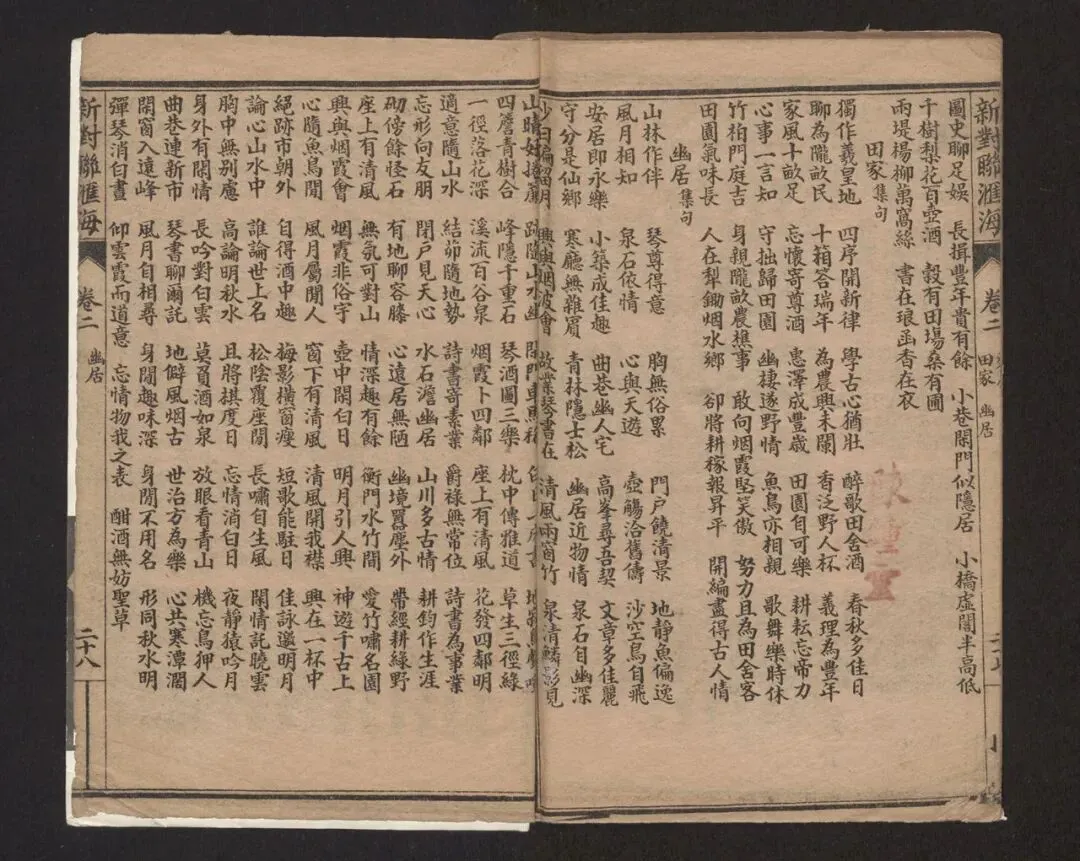 新對聯匯海 卷二 田家 幽居
國史聊足娛 長揖豐年貴有餘 小巷閑門似隱居 小橋虛閣半高低
千樹梨花百壺酒 穀有田塲桑有圃
兩堤楊柳萬窩絲 書在琅函香在衣
田家 集句
獨作羲皇地 四序開新律 學古心猶壯 醉歌田舍酒 春秋多佳日
聊為隴畝民 十箱答瑞年 為農興未闌 香泛野人杯 義理為豐年
家風十畝足 忘懷寄尊酒 惠澤成豐歲 田園自可樂 耕耘忘帝力
心事一言知 守拙歸田園 幽棲遂野情 魚鳥亦相親 歌舞樂時休
竹柏門庭吉 身親隴畝農樵事 敢向烟霞堅笑傲 努力且為田舍客
田園氣味長 人在犁鋤烟水鄉 卻將耕稼報昇平 開編盡得古人情
幽居 集句
山林作伴 琴尊得意 胸無俗累 門戶饒清景 地靜魚偏逸
風月相知 泉石依情 心與天遊 壺觴洽舊儔 沙空鳥自飛
安居即永樂 小築成佳趣 曲巷幽人宅 高峯尋吾契 文章多佳麗
守分是仙鄉 寒廳無雜賓 青林隱士松 幽居近物情 泉石自幽深
沙白偏留月 興與烟波會 故業琴書在 清風兩窗竹 泉清鱗影見
山晴好捲簾 跡隨山水幽 閉門車馬稀
四簷青樹合 峰隱千重石 琴酒圖三樂 枕中傳雅道 草生三徑綠
一徑落花深 溪流百谷泉 烟霞卜四鄰 座上有清風 花發四鄰明
適意隨山水 結茆隨地勢 詩書寄素業 爵祿無常位 詩書為事業
忘形向友朋 閉戶見天心 水石澹幽居 山川多古情 耕釣作生涯
砌傍餘怪石 有地聊容膝 心遠居無陋 幽境囂塵外 帶經耕綠野
座上有清風 無氛可對山 情深趣有餘 衡門水竹間 愛竹嘯名園
興與烟霞會 烟霞非俗宇 壺中閑白日 明月引人興 神遊千古上
心隨魚鳥閒 風月屬閒人 窗下有清風 清風開我襟 興在一杯中
絕跡市朝外 自得酒中趣 梅影橫窗瘦 短歌能駐日 佳詠邀明月
論心山水中 誰論世上名 松陰覆座閒 長嘯自生風 閑情託曉雲
胸中無別慮 高論明秋水 且將棋度日 忘情消白日 夜靜猿吟月
身外有閑情 長吟對白雲 莫負酒如泉 放眼看青山 機忘鳥狎人
曲巷連新市 琴書聊爾託 地僻風烟古 世治方為樂 心共寒潭濶
閑窗入遠峰 風月自相尋 身閒趣味深 身閒不用名 形同秋水明
彈琴消白晝 仰雲霞而道意 忘情物我之表 酣酒無妨聖草
新對聯匯海 卷二 幽居 二十八